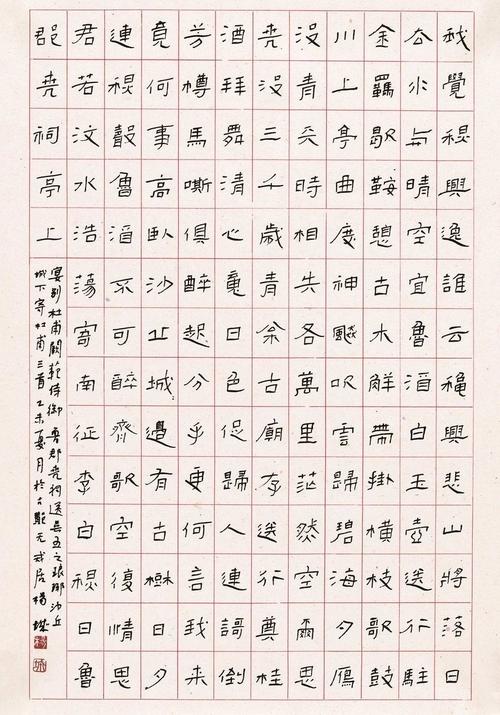 我覺秋興逸誰云秋興悲山將落日
去水與晴空宜魯酒白玉壺送行駐
金羈歇鞍憩古木解帶掛橫枝歌鼓
川上亭曲度神飆吹雲歸碧海夕雁
沒青天時相失各萬里茫然空爾思
堯沒三千歲青松古廟存送行奠桂
酒拜舞清心魂日色促歸人連謌倒
芳樽馬嘶俱醉起分手更何言我來
竟何事高臥沙丘城邊有古樹日夕
連秋聲魯酒不可醉齊歌空復情思
君若汶水浩蕩寄南征李白秋日魯
郡堯祠亭上
宴別杜甫闕范侍御 魯郡堯祠送吳五之琅琊 沙丘
城下寄杜甫三首 乙未夏月於古居 楊